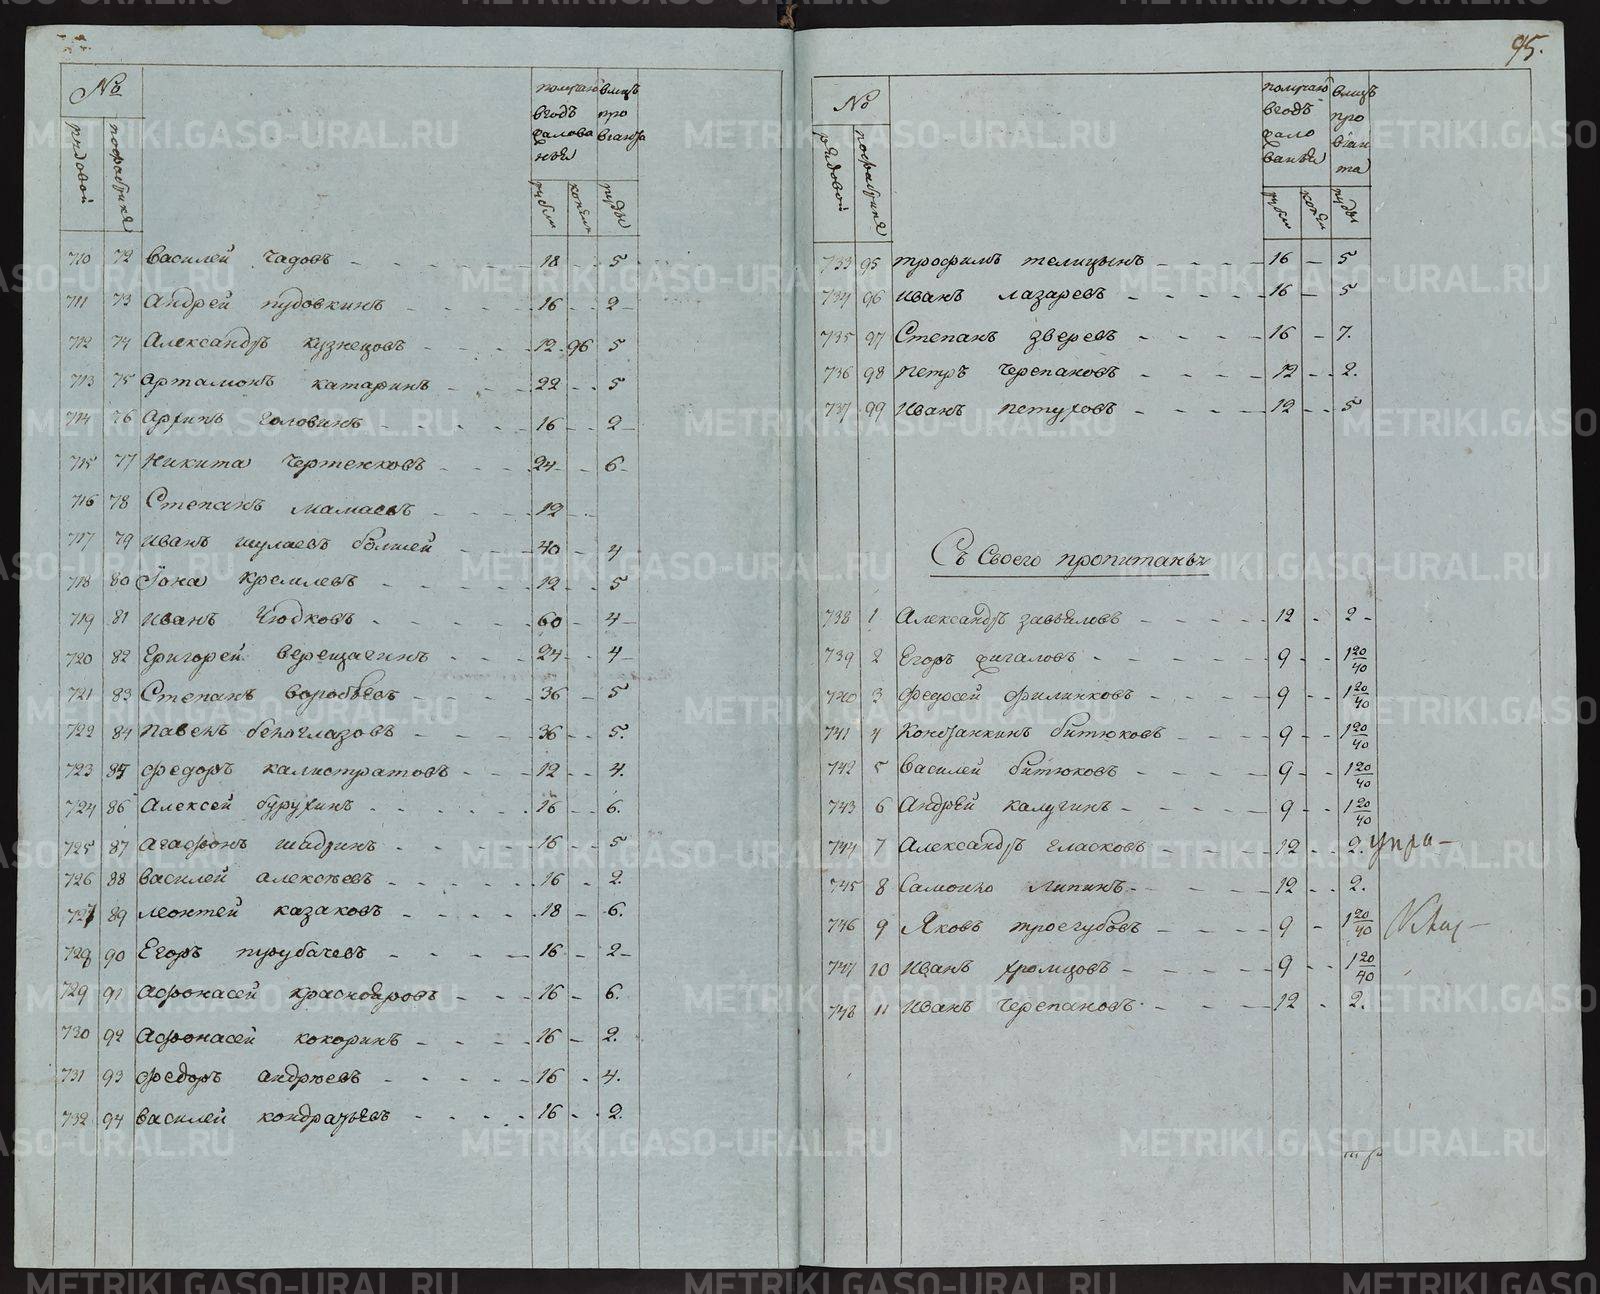 95.
№
рядовой
пофабрике
получаю
вгодъ
жалова
нья
вмцъ
про
вiанта
рубли
копей
пуды
710 72 Василей Чадовъ 18 - 5
711 73 Андрей пудовкинъ 16 - 2
712 74 Александръ кузнецовъ 12 96 5
713 75 Артамонъ катаринъ 22 - 5
714 76 Архипъ Головинъ 16 - 2
715 77 Никита Чертенковъ 24 - 6
716 78 Степанъ мамаевъ 12 -
717 79 Иванъ шулаевъ болшей 40 - 4
718 80 Iона кремлевъ 12 - 5
719 81 Иванъ Чюдковъ 60 - 4
720 82 Григорей верещагинъ 24 - 4
721 83 Степанъ воробьевъ 36 - 5
722 84 Павелъ белоглазовъ 36 - 5.
723 85 Федоръ калистратовъ 12 - 4.
724 86 Алексей бурухинъ 16 - 6.
725 87 Агафонъ шадринъ 16 - 5
726 88 Василей алексеевъ 16 - 2.
727 89 Леонтей казаковъ 18 - 6.
728 90 Егоръ трубачевъ 16 - 2
729 91 Афонасей краснояровъ 16 - 6.
730 92 Афонасей кокоринъ 16 - 2.
731 93 Федоръ андреевъ 16 - 4.
732 94 Василей кондратьевъ 16 - 2.
№
рядовой
пофабрике
получаю
вгодъ
жало
ванья
вмцъ
про
вiан
та
рубли
копей
пуды
733 95 Трофимъ телицынъ 16 - 5
734 96 Иванъ лазаревъ 16 - 5
735 97 Степанъ зверевъ 16 - 7.
736 98 Петръ Черепановъ 12 - 2.
737 99 Иванъ петуховъ 12 - 5
Съ Своего пропитанья
738 1 Александръ завьяловъ 12 - 2
739 2 Егоръ жигаловъ 9 - 1 20/40
740 3 Федосей филинковъ 9 - 1 20/40
741 4 Констанкинъ битюковъ 9 - 1 20/40
742 5 Василей битюковъ 9 - 1 20/40
743 6 Андрей калугинъ 9 - 1 20/40
744 7 Александръ гласковъ 12 - 2.
745 8 Самойло Липинъ 12 - 2.
746 9 Яковъ троегубовъ 9 - 1 20/40
747 10 Иванъ хромцовъ 9 - 1 20/40
748 11 Иванъ Черепановъ 12 - 2.
METRIKI.GASO-URAL.RU